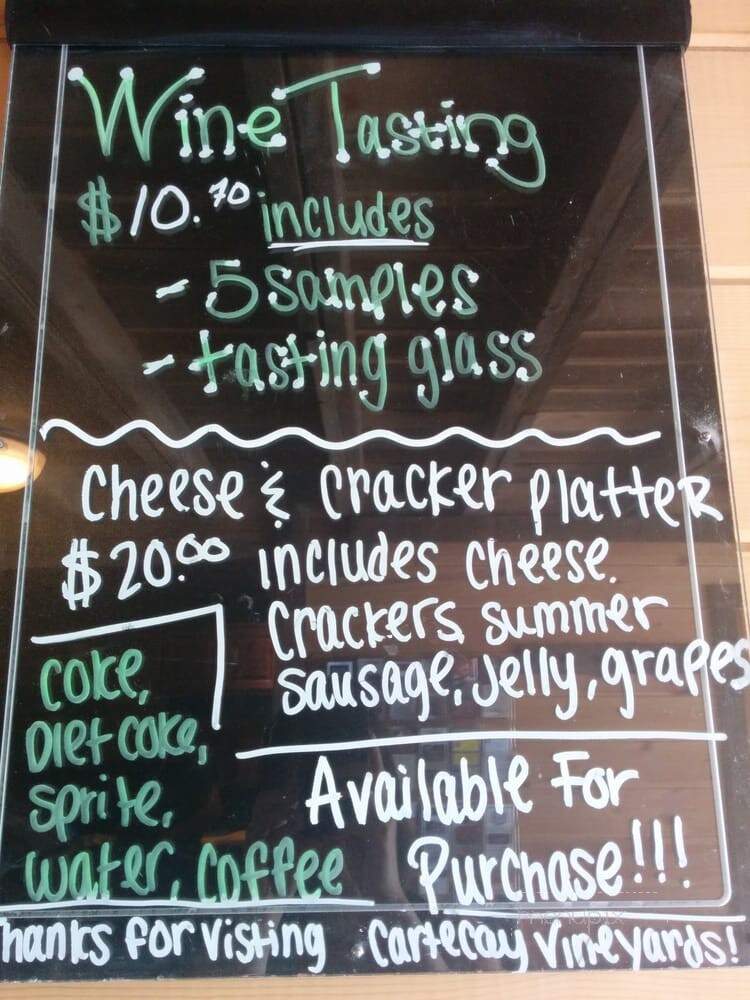 Wine Tasting
$10.70 includes
- 5 samples
- tasting glass
Cheese & Cracker Platter
$20.00 includes cheese,
Crackers, summer
sausage, Jelly, grapes
coke,
Diet coke,
sprite,
water, Coffee
Available For
Purchase!!!
menupix
Thanks for visting Cartecay Vineyards!